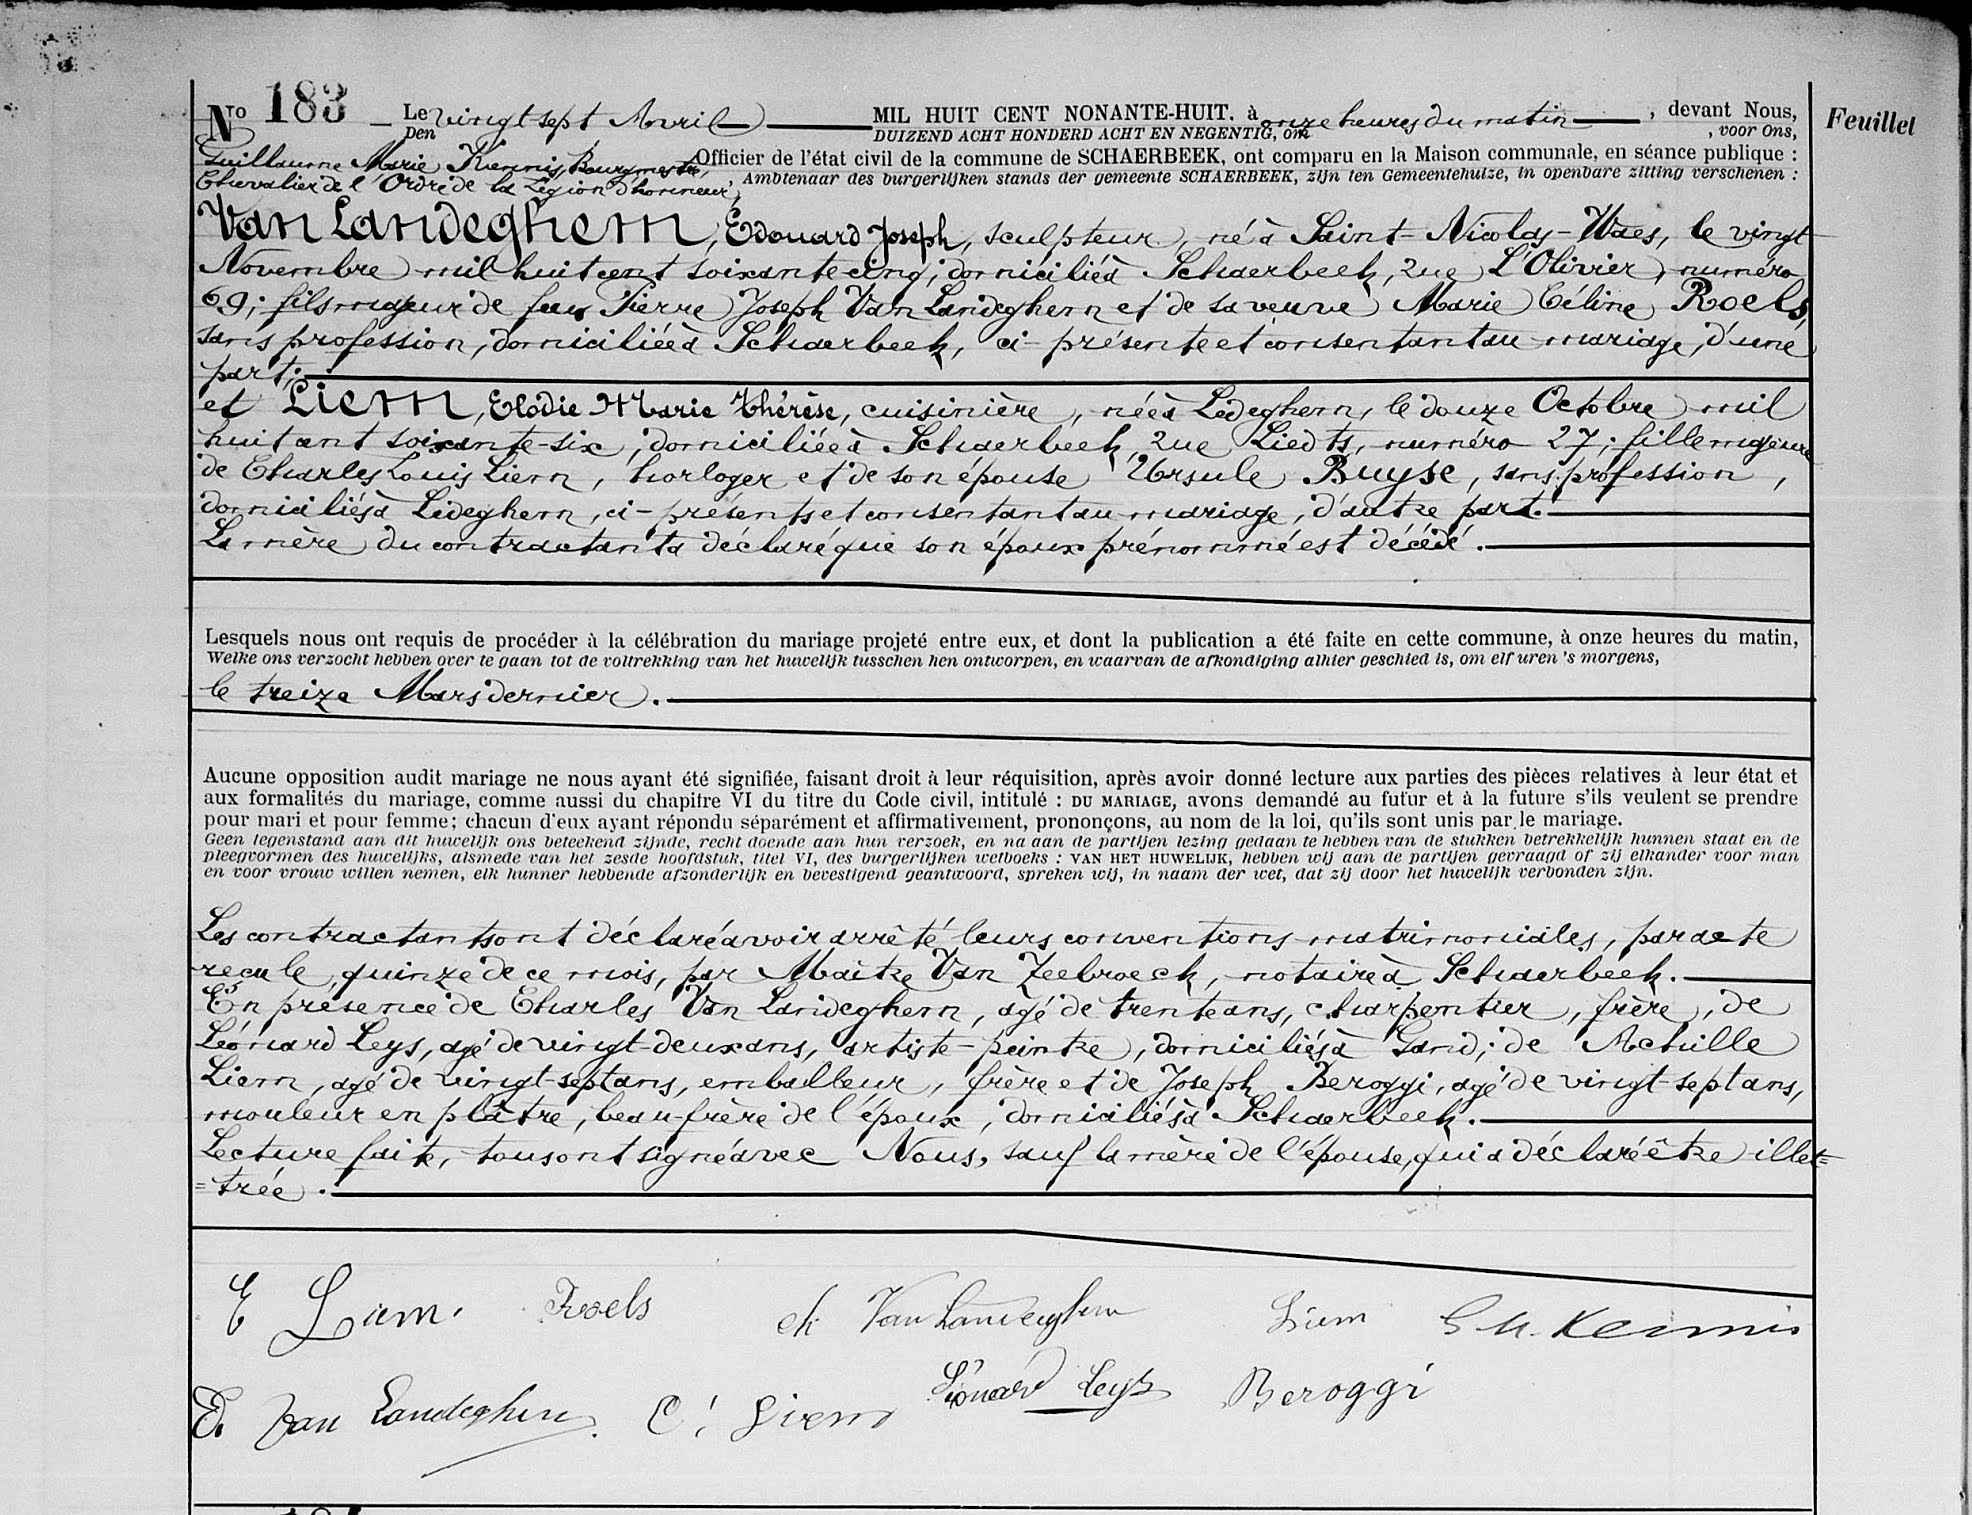 Nro 183 — Le vingt sept Avril — MIL HUIT CENT NONANTE-HUIT, à onze heures du matin —, devant Nous,
Den DUIZEND ACHT HONDERD ACHT EN NEGENTIG, om , voor Ons,
Guillaume Marie Kennis, Bourgmestre, Officier de l'état civil de la commune de SCHAERBEEK, ont comparu en la Maison communale, en séance publique :
Chevalier de l'Ordre de la Légion d'honneur, Ambtenaar des burgerlijken stands der gemeente SCHAERBEEK, zijn ten Gemeentehuize, in openbare zitting verschenen :
Van Landeghem, Edouard Joseph, sculpteur, né à Saint-Nicolas-Waes, le vingt
Novembre mil huit cent soixante-cinq, domicilié à Schaerbeek, rue L'Olivier, numéro
69; fils majeur de feu Pierre Joseph Van Landeghem et de sa veuve Marie Céline Roels,
sans profession, domiciliée à Schaerbeek, ci-présente et consentant au mariage, d'une
part; —
et Liem, Elodie Marie Thérèse, cuisinière, née à Ledeghem, le douze Octobre mil
huit cent soixante-six, domiciliée à Schaerbeek, rue Liedts, numéro 27; fille majeure
de Charles Louis Liem, horloger et de son épouse Ursule Buyse, sans profession,
domiciliés à Ledeghem, ci-présents et consentant au mariage, d'autre part. —
La mère du contractant a déclaré que son époux prénommé est décédé. —
Lesquels nous ont requis de procéder à la célébration du mariage projeté entre eux, et dont la publication a été faite en cette commune, à onze heures du matin,
Welke ons verzocht hebben over te gaan tot de voltrekking van het huwelijk tusschen hen ontworpen, en waarvan de afkondiging alhier geschied is, om elf uren 's morgens,
le treize Mars dernier. —
Aucune opposition audit mariage ne nous ayant été signifiée, faisant droit à leur réquisition, après avoir donné lecture aux parties des pièces relatives à leur état et
aux formalités du mariage, comme aussi du chapitre VI du titre du Code civil, intitulé : DU MARIAGE, avons demandé au futur et à la future s'ils veulent se prendre
pour mari et pour femme; chacun d'eux ayant répondu séparément et affirmativement, prononçons, au nom de la loi, qu'ils sont unis par le mariage.
Geen tegenstand aan dit huwelijk ons beteekend zijnde, recht doende aan hun verzoek, en na aan de partijen lezing gedaan te hebben van de stukken betrekkelijk hunnen staat en de
pleegvormen des huwelijks, alsmede van het zesde hoofdstuk, titel VI, des burgerlijken wetboeks : VAN HET HUWELIJK, hebben wij aan de partijen gevraagd of zij elkander voor man
en voor vrouw willen nemen, elk hunner hebbende afzonderlijk en bevestigend geantwoord, spreken wij, in naam der wet, dat zij door het huwelijk verbonden zijn.
Les contractants ont déclaré avoir arrêté leurs conventions matrimoniales, par acte
reçu le quinze de ce mois, par Maître Van Zeebroeck, notaire à Schaerbeek. —
En présence de Charles Van Landeghem, agé de trente ans, charpentier, frère, de
Léonard Leys, agé de vingt-deux ans, artiste-peintre, domiciliés à Gand; de Achille
Liem, agé de vingt-sept ans, emballeur, frère et de Joseph Beroggi, agé de vingt-sept ans,
mouleur en plâtre, beau-frère de l'époux, domiciliés à Schaerbeek. —
Lecture faite, tous ont signé avec Nous, sauf la mère de l'épouse, qui a déclaré être illet=
=trée. —
E Liem. Roels ch Van Landeghem Liem G M. Kennis
Ed Van Landeghem. C! Liem Léonard Leys Beroggi
Feuillet